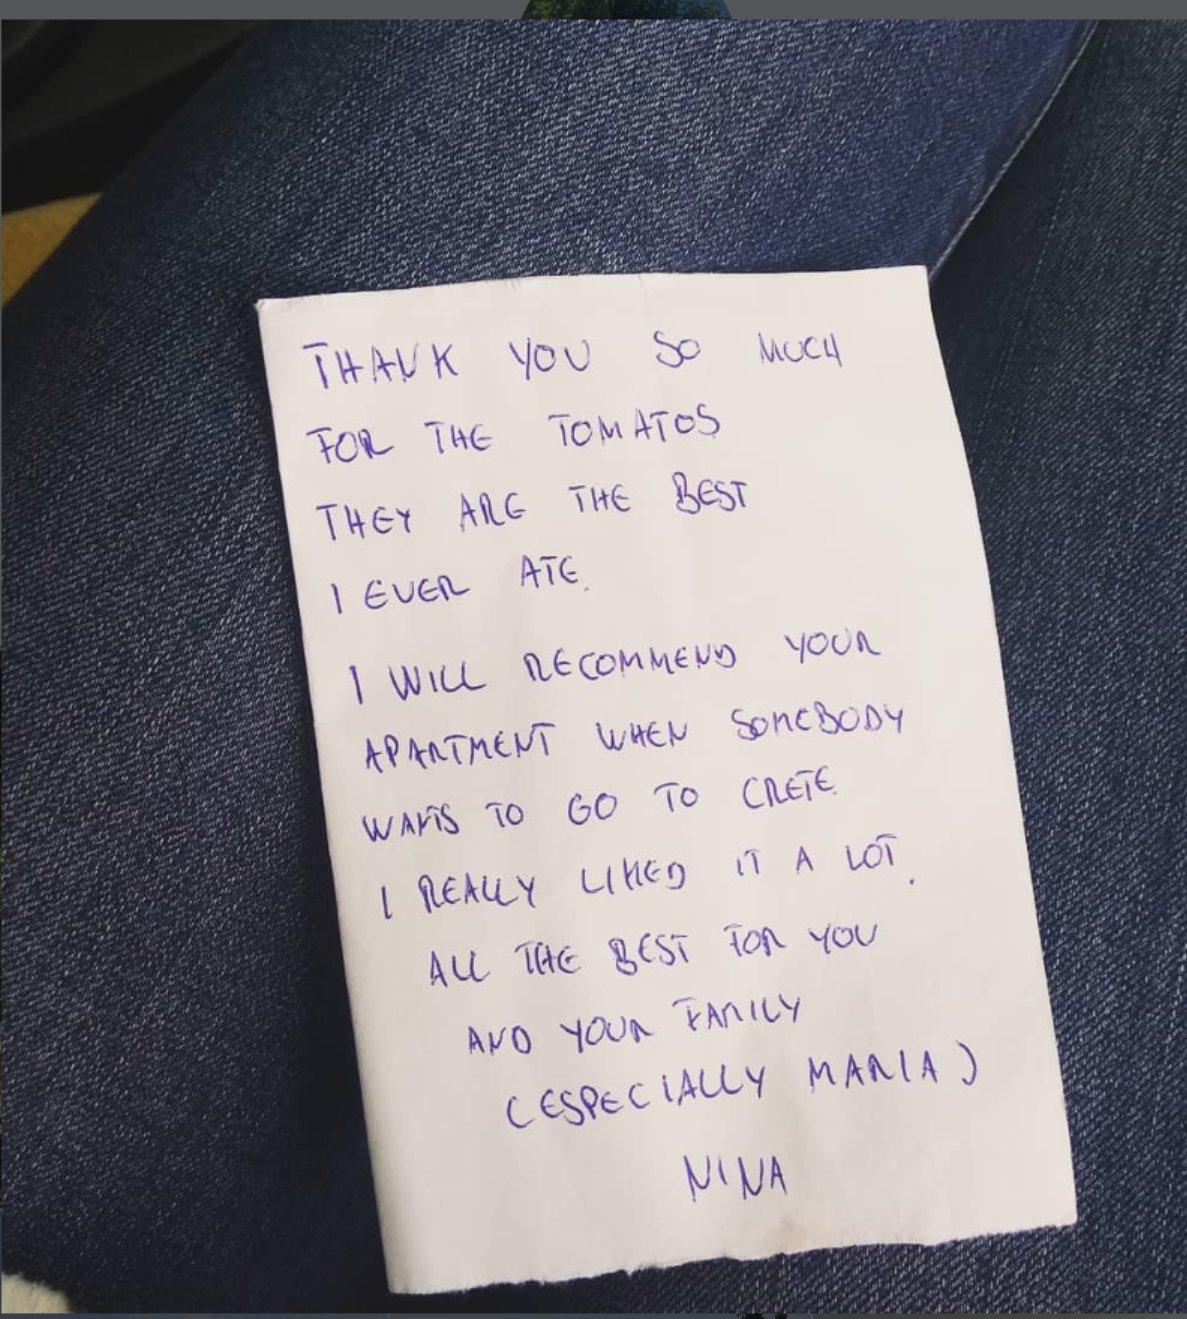 THANK YOU SO MUCH
FOR THE TOMATOS
THEY ARE THE BEST
I EVER ATE.
I WILL RECOMMEND YOUR
APARTMENT WHEN SOMEBODY
WANTS TO GO TO CRETE.
I REALLY LIKED IT A LOT.
ALL THE BEST FOR YOU
AND YOUR FAMILY
(ESPECIALLY MARIA)
NINA